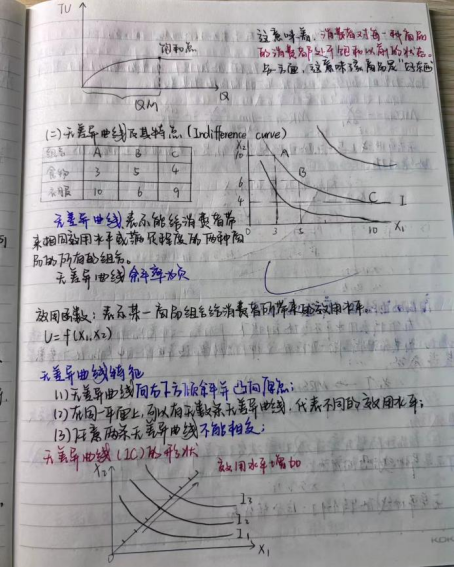 TU
饱和点
QM
Q
这意味着,消费者对每一种商品
的消费都处于饱和以前的状态。
另一方面,这意味该商品是“好东西”
(二)无差异曲线及其特点 (Indifference curve)
A B C
食物 3 5 4
衣服 10 6 9
X₂
10
6
4
A
B
C
I
0 3 5 10 X₁
无差异曲线表示能给消费者带
来相同效用水平或满足程度的两种商
品的所有的组合。
无差异曲线斜率为负
效用函数:表示某一商品组合给消费者所带来的效用水平。
U=f(X₁,X₂)
无差异曲线特征
(1)无差异曲线向右下方倾斜并凸向原点;
(2)在同一平面上,可以有无数条无差异曲线,代表不同的效用水平;
(3)任意两条无差异曲线不能相交;
无差异曲线(IC)的形状
X₂
效用水平增加
I₃
I₂
I₁
0
X₁